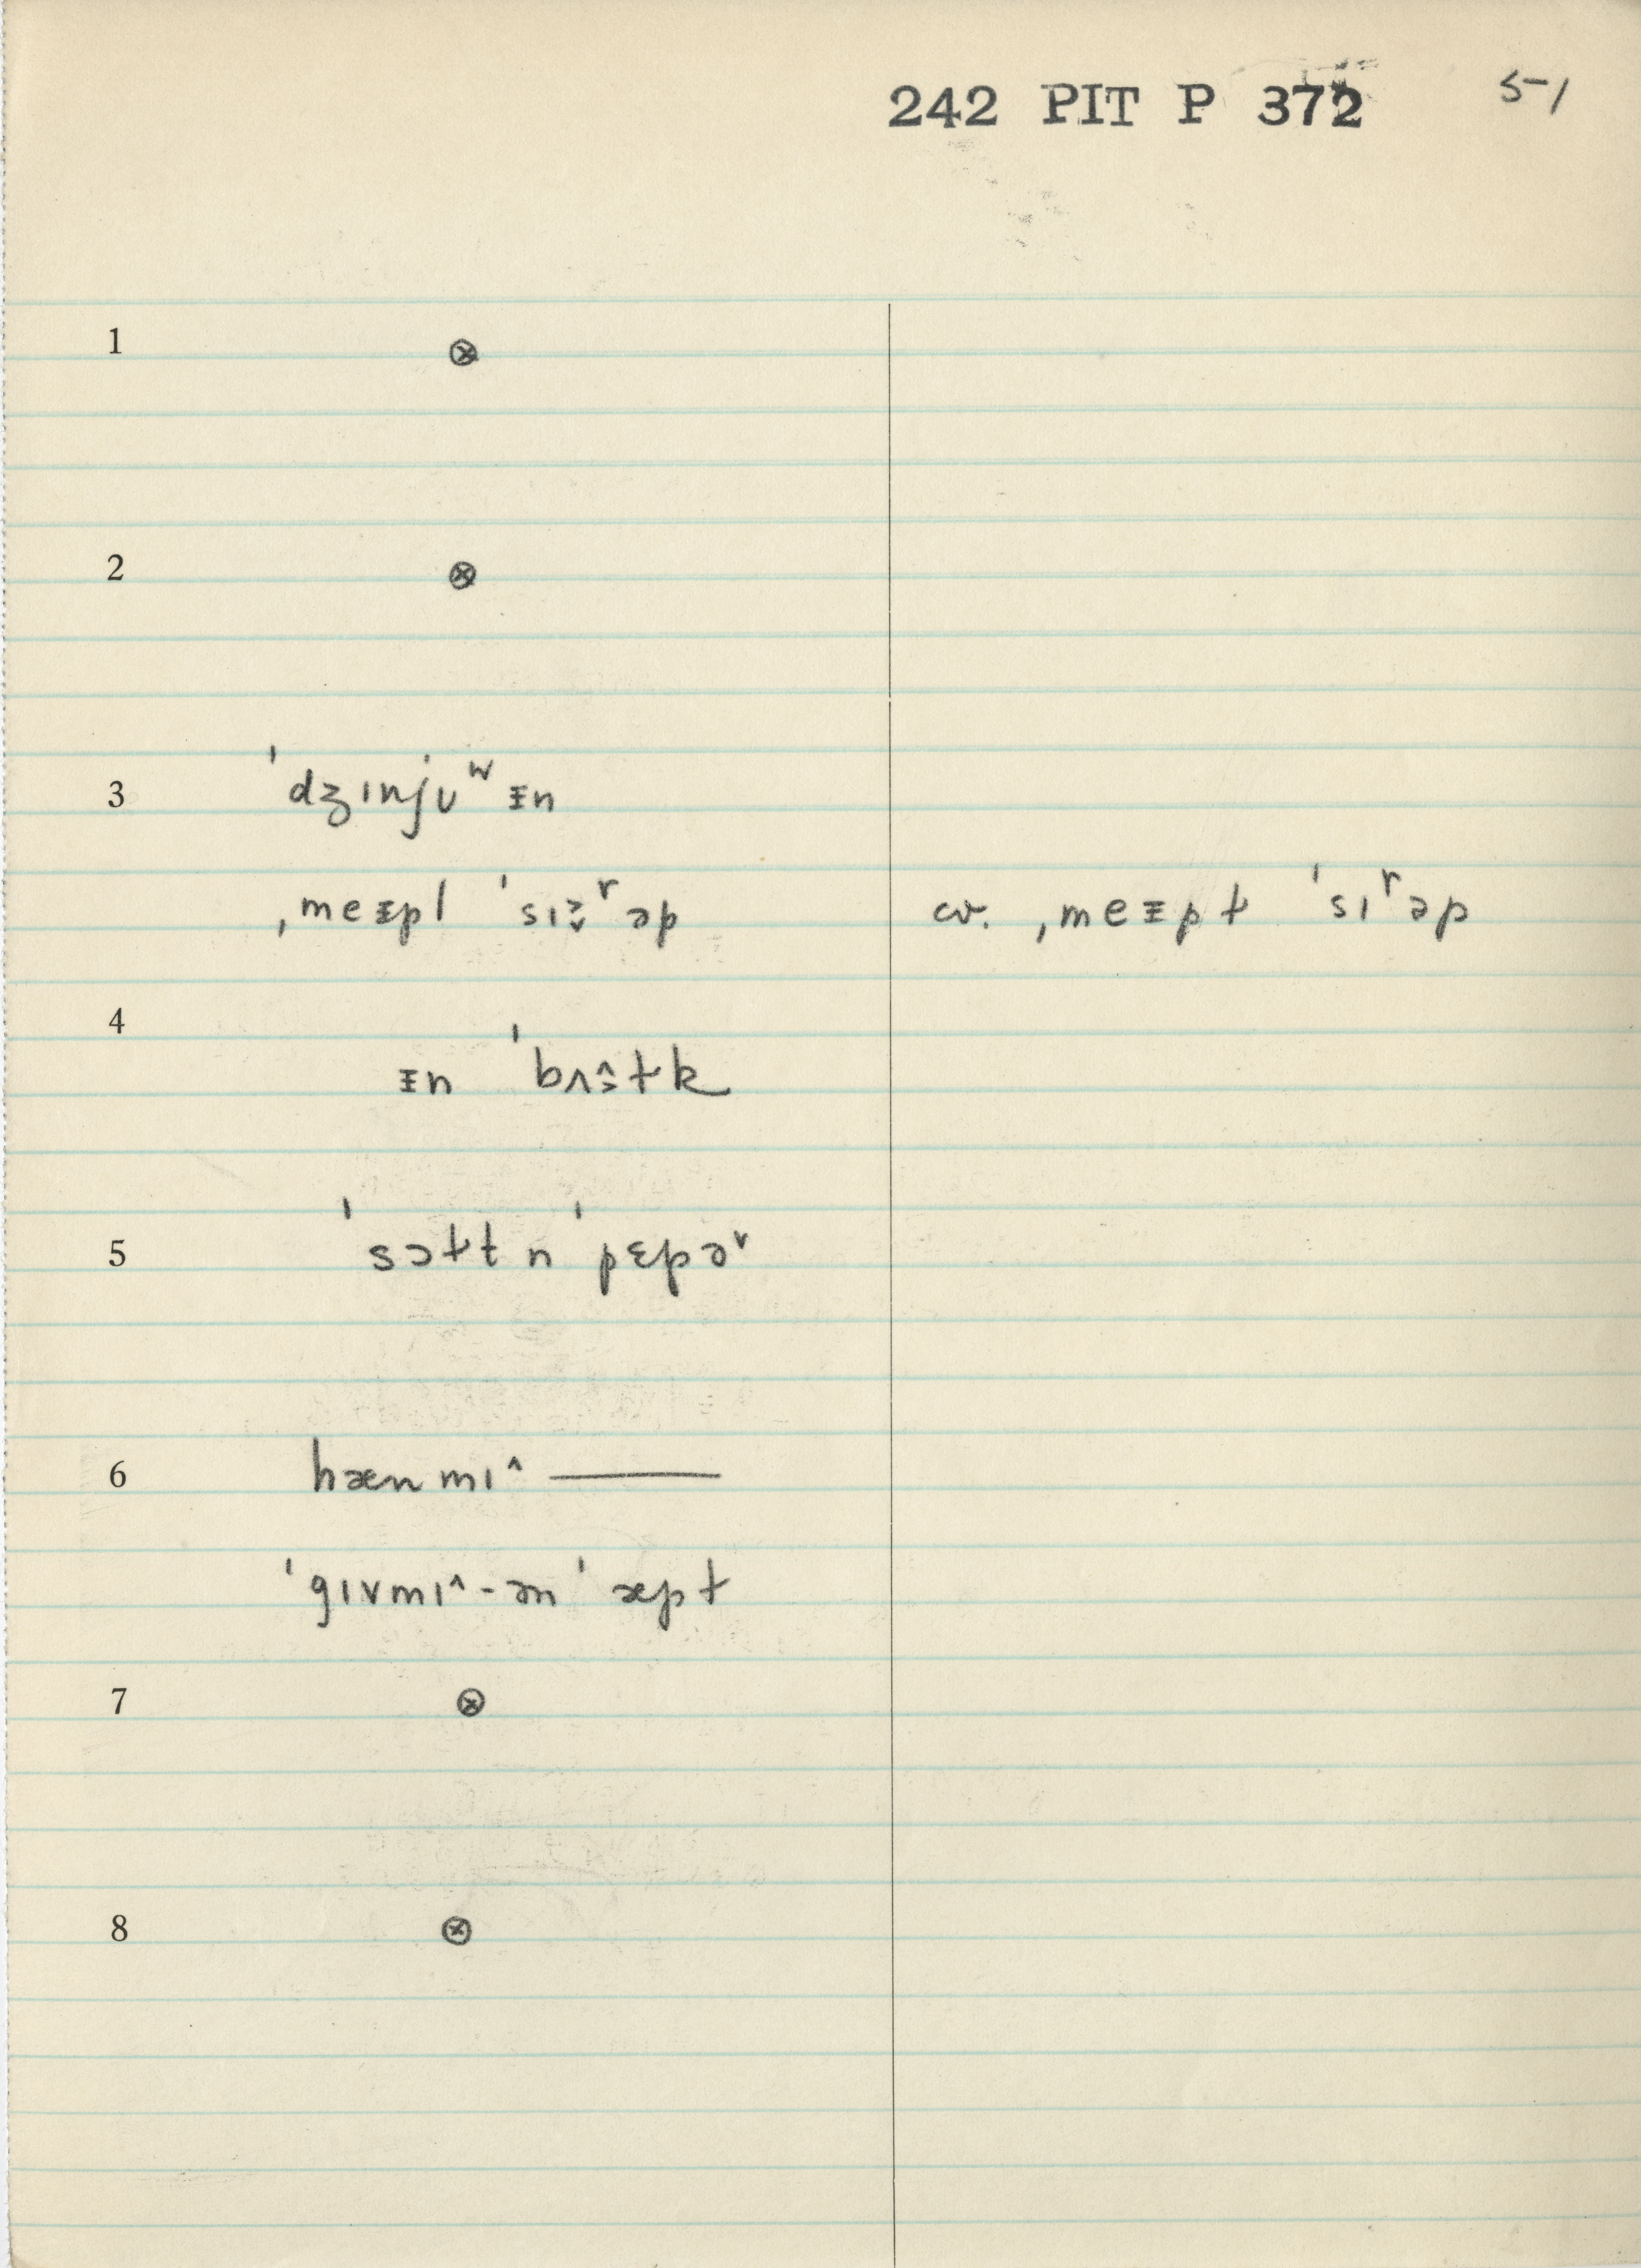 242 PIT P 372 51
1 ⊗
2 ⊗
3 ˈdʒɪnjʊʷᵻn
ˌmeᵻpl ˈsɪ˃˅ʳəp cv. ˌmeᵻpɫ ˈsɪʳəp
4
ᵻn ˈbʌ^˃ɫk
5 ˈsɔɫt n ˈpɛpəʳ
6 hænmɪ^ ———
ˈgɪvmɪ^-ən ˈæpɫ
7 ⊗
8 ⊗